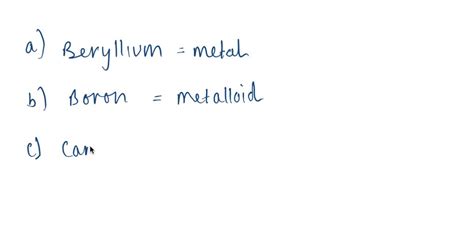 a) Beryllium = metal
b) Boron = metalloid
c) Car